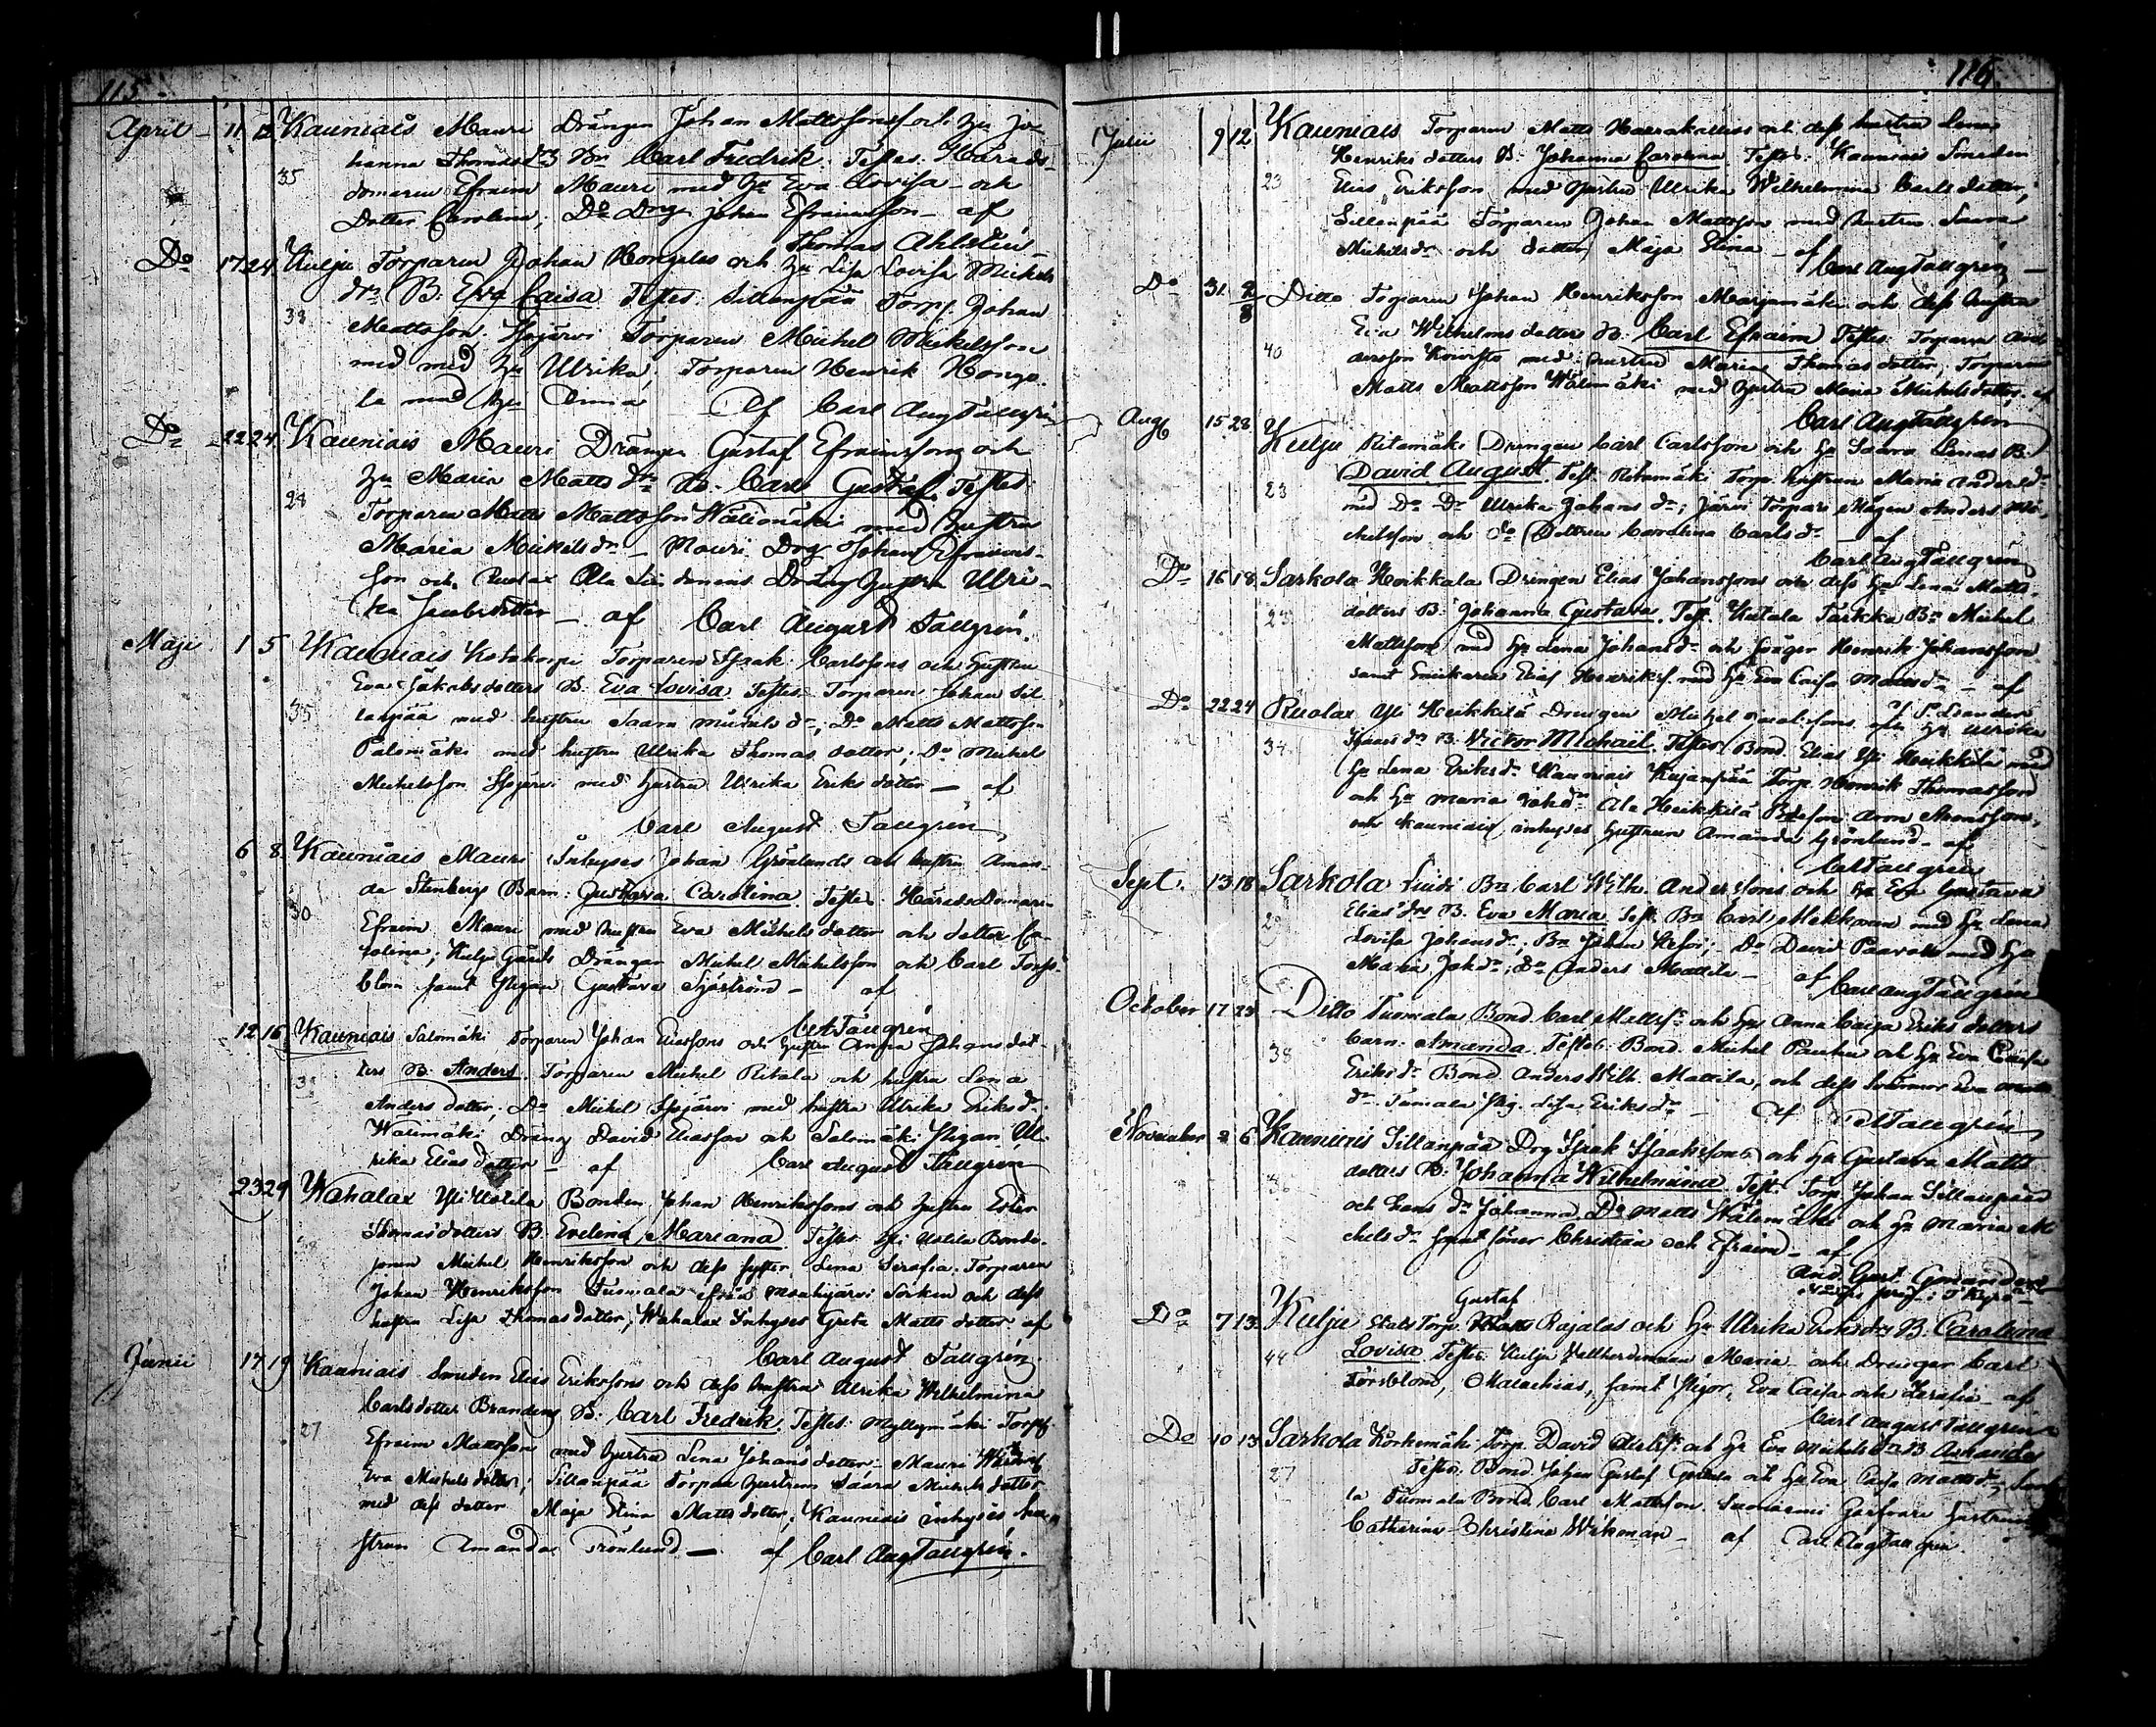 115
April 11 12 Kauniais Mauri Drängen Johan Mattssons och Hu Jo-
hanna Thomasdrs Bn Carl Fredrik. Testes. Härads-
35
domaren Efraim Mauri med Hu Eva Lovisa och
Dotter Carolina; Do Drg Johan Efraimsson af
Thomas Ahlstén
Do 17 24 Kulju Torparen Johan Hongolas och Hu Lisa Lovisa Mickels
drs B: Eva Caisa Testes Sillanpää Torp. Johan
38
Mattsson, Isojärvi Torparen Michel Mickelsson
med med Hu Ulrika, Torparen Henrik Hongo-
la med Hu Anna Af Carl Aug Tallgrén
Do 22 24 Kauniais Mauri Drängen Gustaf Efraimssons och
Hu Maria Matts drs B. Carl Gustaf. Testes
28
Torparen Matts Mattsson Wälimäki med Hustru
Maria Mickels dr Mauri Drg Johan Efraims-
son och Ruolax Ala Dräng Hustru Ulri-
ka Jacobsdotter af Carl August Tallgrén.
Maji 1 5 Kauniais Kotokorpi Torparen Isak Carlssons och Hustru
Eva Jakobsdotters B. Eva Lovisa Testes Torparen Johan Sil
35
lanpää med hustru Saara Michels dr; Do Matts Mattsson
Palomäki med hustru Ulrika Thomas dotter; Do Michel
Michelsson Isojärvi med Hustru Ulrika Eriksdotter af
Carl August Tallgrén
6 8 Kauniais Mauri Inhyses Johan Grönlunds och hustru Aman-
da Stenbergs Barn: Gustava Carolina Testes Häradsdomaren
30
Efraim Mauri med hustru Eva Michelsdotter och dotter Ca-
rolina; Kulju Gårds Drängar Michel Michelsson och Carl Torss-
blom samt Pigan Gustava Sjöström af
CA Tallgrén
12 16 Kauniais Salomäki Torparen Johan Eliassons och Hustru Anna Johansdot
ters B. Anders. Torparen Michel Ritala och hustru Lena
Anders dotter; Do Michel Isojärvi med hustru Ulrika Eriksdr
Wälimäki Dräng David Eliasson och Salomäki Pigan Ul-
rika Elias dotter af Carl August Tallgrén
23 29 Wahalax Yli Uotila Bonden Johan Henrikssons och Hustru Ester
Thomasdotters B. Evelina Mariana Testes Yli Uotila Bonde-
sonen Michel Henriksson och dess syster Lena Serafia. Torparen
Johan Henriksson Tuomala ifrån Mouhijärvi Socken och dess
hustru Lisa Thomasdotter; Wahalax Inhyses Greta Matts dotter af
Carl August Tallgrén
Junii 17 19 Kauniais Smeden Elias Erikssons och dess hustru Ulrika Wilhelmina
Carlsdotter Branders B: Carl Fredrik. Testes Myllymäki Torp
27
Efraim Mattsson med Hustru Lina Johansdotter Mauri
Eva Michels dotter; Sillanpää Torpare hustrun Saara Michelsdotter
med dess dotter Maja Stina Mattsdotter, Kauniais inhyses hu-
strun Amanda Grönlund af Carl Aug Tallgrén.
116.
Julii 9 12 Kauniais Torparen Matts Haarakallios och dess hustru Lena
Henriksdotters B: Johanna Carolina Testes: Kauniais Smeden
23
Elias Eriksson med Hustru Ulrika Wilhelmina Carlsdotter,
Sillanpää Torparen Johan Mattsson med hustru Saara
Michelsdr och dotter Maja Stina af
Carl Aug Tallgrén
Do 31 2/8 Ditto Torparen Johan Henriksson Marjamäki och dess hustru
Eva Wilhelmsdotters B. Carl Efraim Testes: Torparen And
40
dersson Kouvisto med hustru Maria Thomasdotter, Torparen
Matts Mattsson Wälimäki med Hustru Maria Michelsdotter af
Carl Aug Tallgrén
Aug 15 23 Kulju Ritamäki Drengen Carl Carlsson och Hu Saara Linas B:
David August. Test. Ritamäki Torp. hustrun Maria Anders dr
23
med Do Dr Ulrika Johans dr; Järvi Torpare Mågen Anders Mi-
chelsson och do Dottren Carolina Carls dr af
Carl Aug Tallgrén
Do 16 18 Sarkola Heikkala Drengen Elias Johanssons och dess Hu Lena Matts-
dotters B: Johanna Gustava. Test. Kutala Tarkka Bn Michel
23
Mattsson med Hu Lena Johans dr och Svåger Henrik Johansson
samt Enickaren Elias Henriks. med Hu Eva Caisa Matts dr af
Do 22 24 Ruolax Yli Heikkilä Drengen Michel och Hu Ulrika
Isaks drs B. Victor Michael Testes Bond Elias Yli Heikkilä med
34
Hu Lena Eriks dr Kauniais Kujanpää Torp Henrik Thomasson
och Hu Maria Joh dr Ala Heikkilä Bdeson Aron Aronsson,
och Kauniais inhyses hustrun Amanda Grönlund af
CA Tallgrén
Sept. 13 18 Sarkola Luidi Bn Carl Wilh. Anderssons och Hu Eva Gustava
Elias drs B. Eva Maria Test. Bn Carl Mikkonen med Hu Lena
29
Lovisa Johans dr; Bn Johan; Do David Paavola med Hu
Maria Joh dr; Do Anders Mattila af Carl Aug Tallgrén
October 17 23 Ditto Tuomala Bond Carl Mattss och Hu Anna Caisa Eriks dotters
barn: Amanda Testes: Bond Michel Pauhu och Hu Eva Caisa
38
Eriks dr Bond Anders Wilh. Mattila, och dess Svärmor Eva Matts
dr Tuomala Pig. Lisa Eriks dr Af CA Tallgrén
November 2 6 Kauniais Sillanpää Drg Isak Isakssons och Hu Gustava Matts
dotters B: Johanna Wilhelmina Test. Torp Johan Sillanpää
och hans dr Johanna. Do Matts Wälimäki och Hu Maria Mi
chels dr samt söner Christian och Efraim af
And Gust
Gustaf
Do 7 13 Kulju Stats Torp. Rajalas och Hu Ulrika Eriks drs B. Carolina
Lovisa Testes Kulju Maria och Drengar Carl
44
Törsblom, Malachias, samt Pigor, Eva Caisa och Serafia af
Carl August Tallgrén
Do 10 13 Sarkola Körkemäki Torp. David och Hu Eva Michels drs B. Amanda
Testes: Bond Johan Gustaf och Hu Eva Caisa Matts dr, Sar
27
la Tuomala Bond Carl Mattsson Suoniemi Garfvare hustrun
Catharina Christina Wikman af Carl Aug Tallgrén.